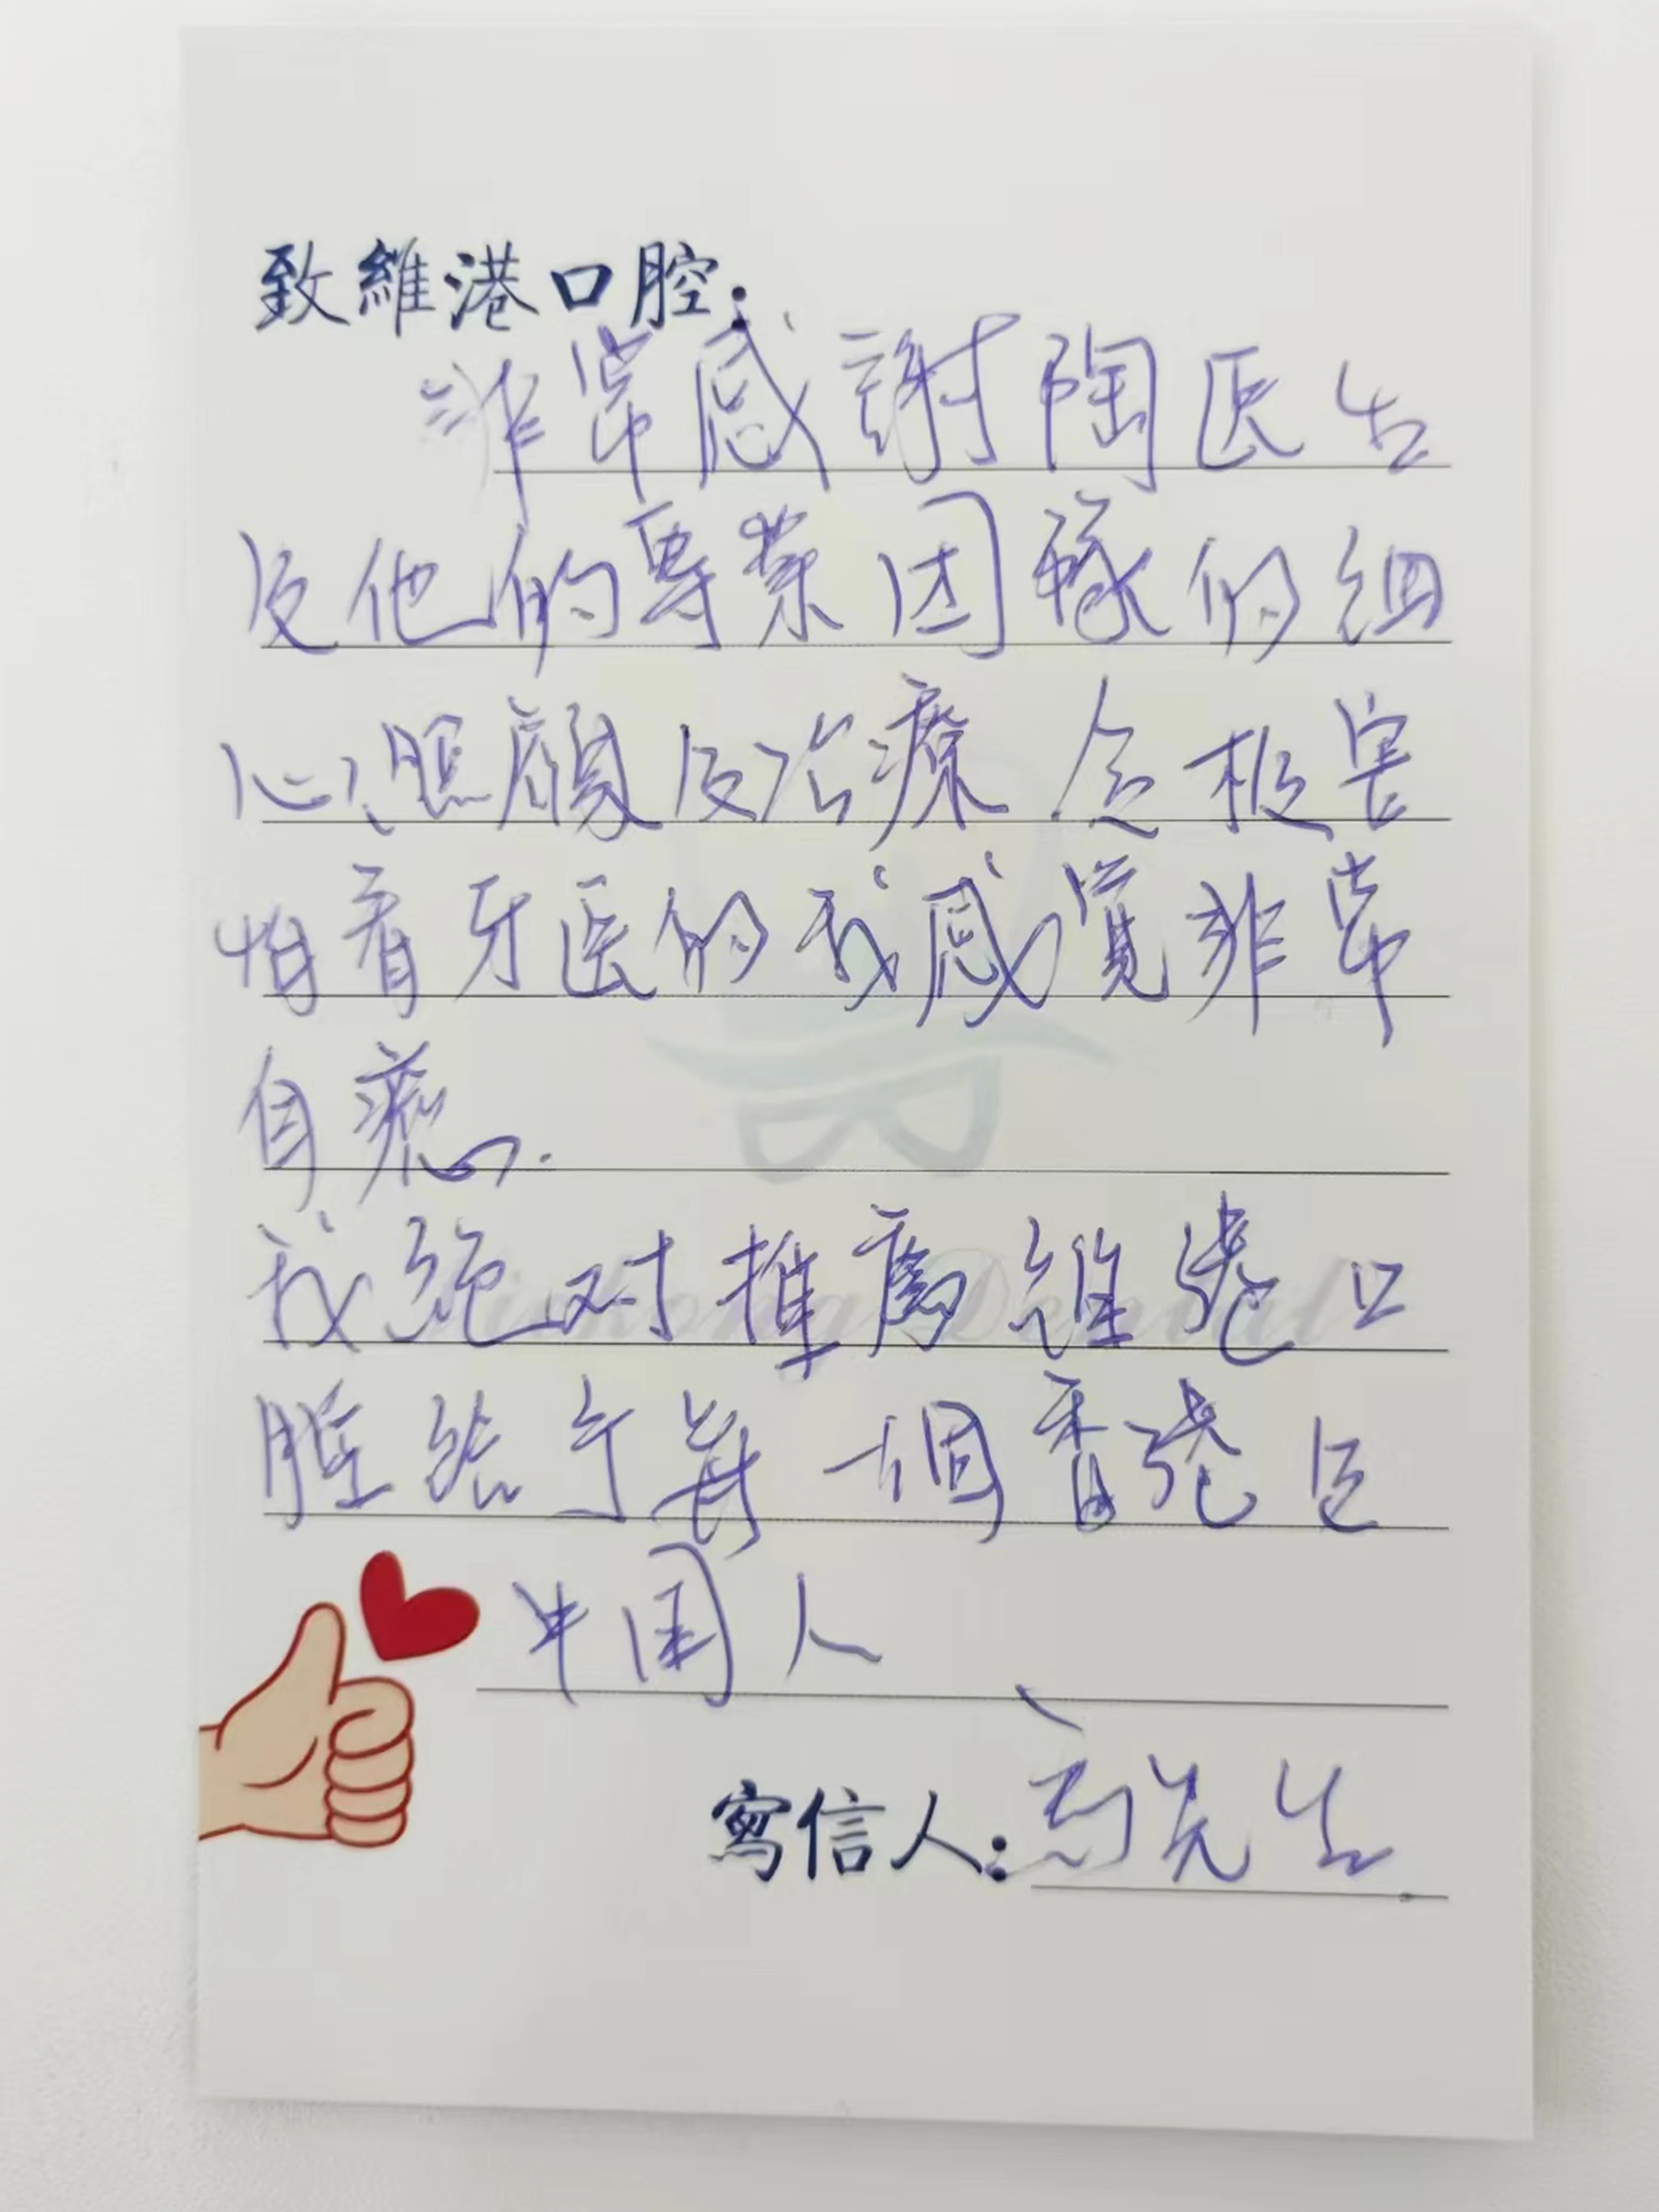 致維港口腔：
非常感謝陶医生
及他的專業团隊的細
心照顧及治療 令極害
怕看牙医的我感覺非常
自 .
我絕对推薦維港口
腔給予每一個香港区
中国人
寫信人： 先生